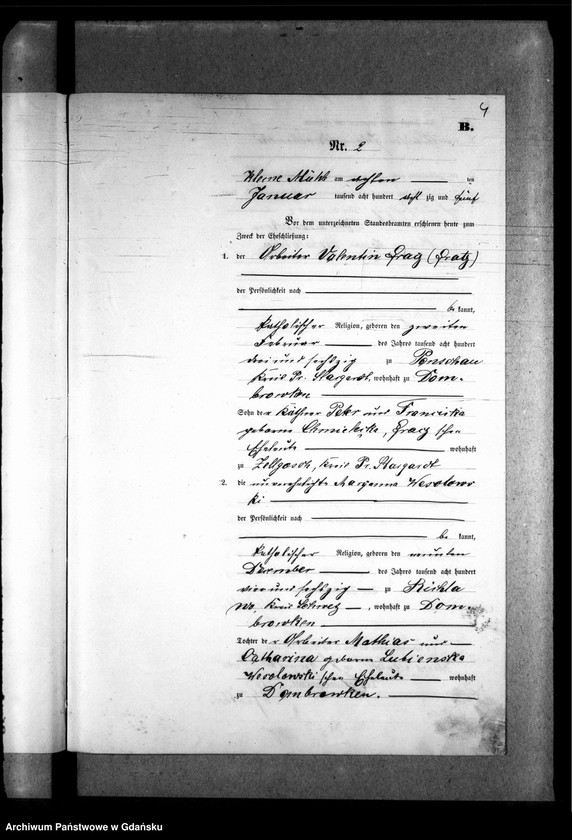 4
B.
Nr. 2
Kleine Mühle am achten ten
Januar tausend acht hundert acht zig und fünf
Vor dem unterzeichneten Standesbeamten erschienen heute zum
Zweck der Eheschließung:
1. der Arbeiter Valentin Gracz (Gratz)
der Persönlichkeit nach
be kannt,
katholischer Religion, geboren den zweiten
Februar des Jahres tausend acht hundert
drei und sechszig zu
Kreis Pr. Stargardt, wohnhaft zu Dom-
browken
Sohn der Käthner Peter und Franciska
geborene
Eheleute wohnhaft
zu Zellgosch, Kreis Pr. Stargardt
2. die unverehelichte Marjanna Wesolows
ki
der Persönlichkeit nach
be kannt,
katholischer Religion, geboren den neunten
Dezember des Jahres tausend acht hundert
vier und sechszig zu
Kreis Schwetz, wohnhaft zu Dom-
browken
Tochter der Arbeiter Mathias und
Catharina geborene Lubienska
Wesolowski schen Eheleute wohnhaft
zu Dombrowken.
Archiwum Państwowe w Gdańsku